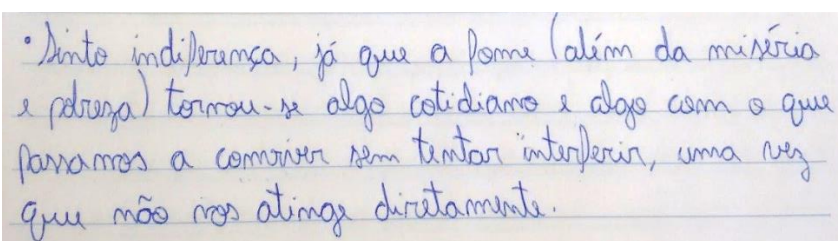 • Sinto indiferença, já que a fome (além da miséria
e pobreza) tornou-se algo cotidiano e algo com o que
passamos a conviver sem tentar interferir, uma vez
que não nos atinge diretamente.